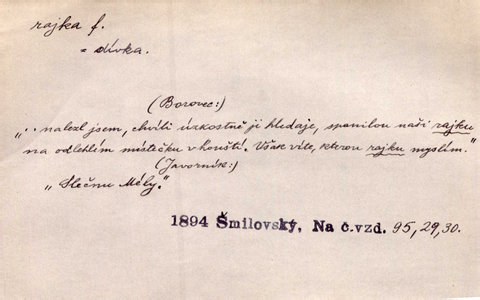 rajka f.
= dívka.
(Borovec:)
„..nalezl jsem, chvíli úzkostně ji hledaje, spanilou naši rajku
na odlehlém místečku v houští. Však víte, kterou rajku myslím."
(Javorník:)
„Slečnu Mély."
1894 Šmilovský, Na č.vzd. 95, 29, 30.